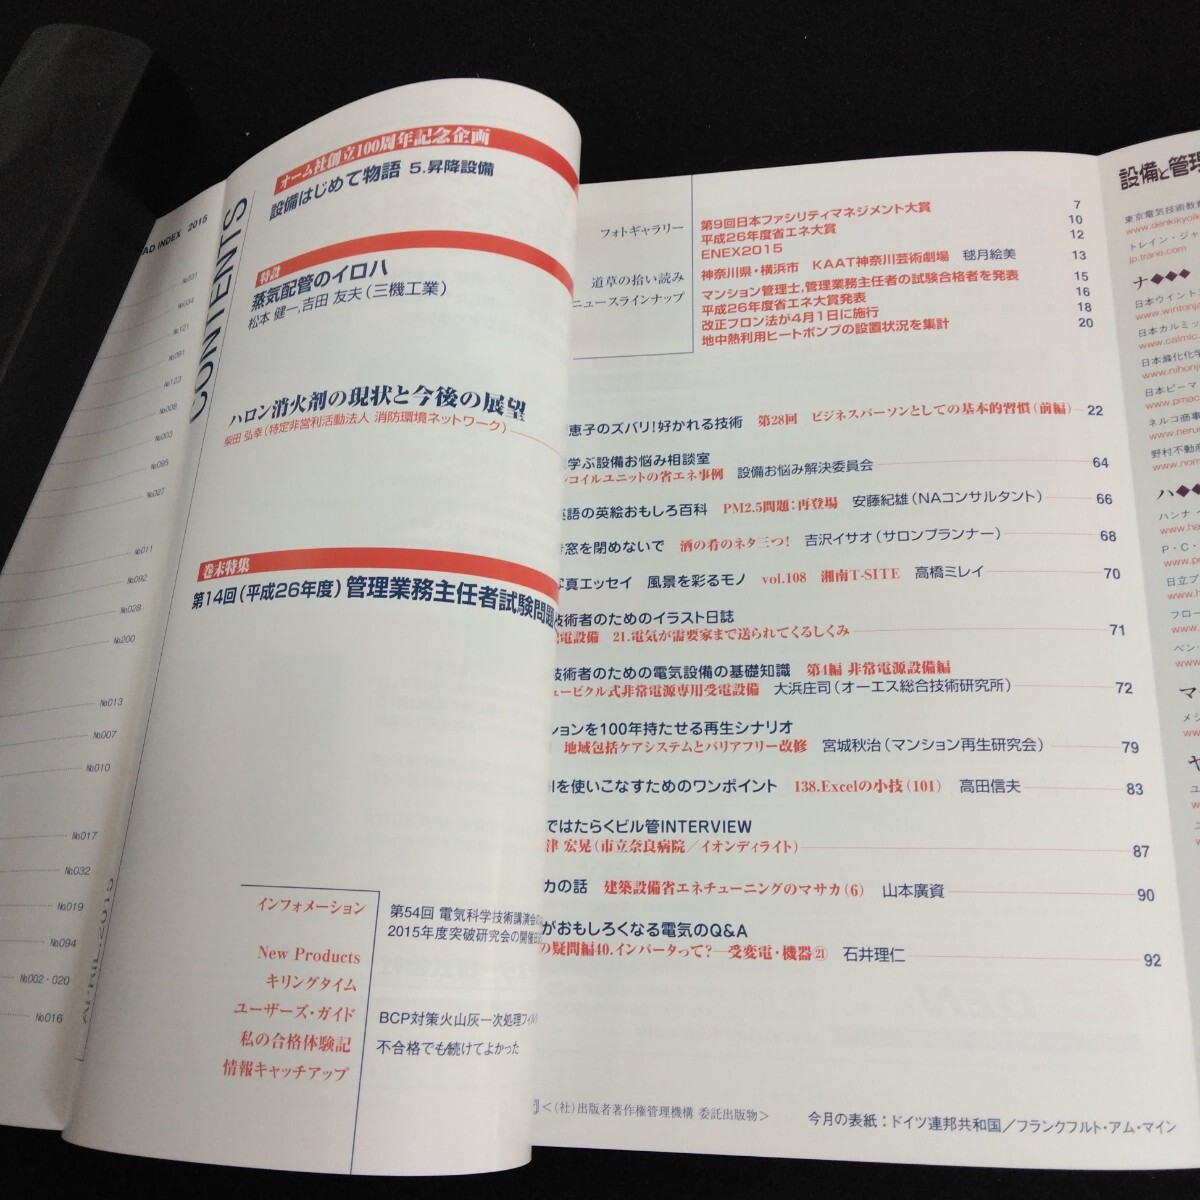 AD INDEX 2015
№031
№034
№121
№091
№123
№008
№003
№095
№027
№011
№092
№028
№200
№013
№007
№010
№017
№032
№019
№094
№002・020
№016
CONTENTS
オーム社創立100周年記念企画
設備はじめて物語 5.昇降設備
特設
蒸気配管のイロハ
松本 健一,吉田 友夫(三機工業)
ハロン消火剤の現状と今後の展望
柴田 弘幸(特定非営利活動法人 消防環境ネットワーク)
巻末特集
第14回(平成26年度)管理業務主任者試験問題
インフォメーション
第54回 電気科学技術講演会
2015年度突破研究会の開催
New Products
キリングタイム
ユーザーズ・ガイド
BCP対策火山灰一次処理フィル
私の合格体験記
不合格でも続けてよかった
情報キャッチアップ
フォトギャラリー
第9回日本ファシリティマネジメント大賞 7
平成26年度省エネ大賞 10
ENEX2015 12
道草の拾い読み
神奈川県・横浜市 KAAT神奈川芸術劇場 毬月絵美 13
ニュースラインナップ
マンション管理士,管理業務主任者の試験合格者を発表 15
平成26年度省エネ大賞発表 16
改正フロン法が4月1日に施行 18
地中熱利用ヒートポンプの設置状況を集計 20
恵子のズバリ!好かれる技術 第28回 ビジネスパーソンとしての基本的習慣(前編) 22
学ぶ設備お悩み相談室
コイルユニットの省エネ事例 設備お悩み解決委員会 64
英語の英絵おもしろ百科 PM2.5問題:再登場 安藤紀雄(NAコンサルタント) 66
窓を閉めないで 酒の肴のネタ三つ! 吉沢イサオ(サロンプランナー) 68
写真エッセイ 風景を彩るモノ vol.108 湘南T-SITE 高橋ミレイ 70
技術者のためのイラスト日誌
電設備 21.電気が需要家まで送られてくるしくみ 71
技術者のための電気設備の基礎知識 第4編 非常電源設備編
ュービクル式非常電源専用受電設備 大浜庄司(オーエス総合技術研究所) 72
ションを100年持たせる再生シナリオ
地域包括ケアシステムとバリアフリー改修 宮城秋治(マンション再生研究会) 79
を使いこなすためのワンポイント 138.Excelの小技(101) 高田信夫 83
ではたらくビル管INTERVIEW
津 宏晃(市立奈良病院/イオンディライト) 87
カの話 建築設備省エネチューニングのマサカ(6) 山本廣資 90
がおもしろくなる電気のQ&A
の疑問編40.インバータって?―受変電・機器㉑ 石井理仁 92
<(社)出版者著作権管理機構 委託出版物>
今月の表紙:ドイツ連邦共和国/フランクフルト・アム・マイン
設備と管理
東京電気技術教
www.denkikyoik
トレイン・ジャ
jp.trane.com
ナ◆◆◆
日本ウイント
www.wintonja
日本カルミッ
www.calmic.
日本滌化化学
www.nihonj
日本ピーマ
www.pmac
ネルコ商事
www.neru
野村不動産
www.nom
ハ◆◆
ハンナ
www.ha
P・C・
www.p
日立ブ
www.h
フロー
www.
ベン・
www
マ
メシ
ww
ヤ
ユ
w